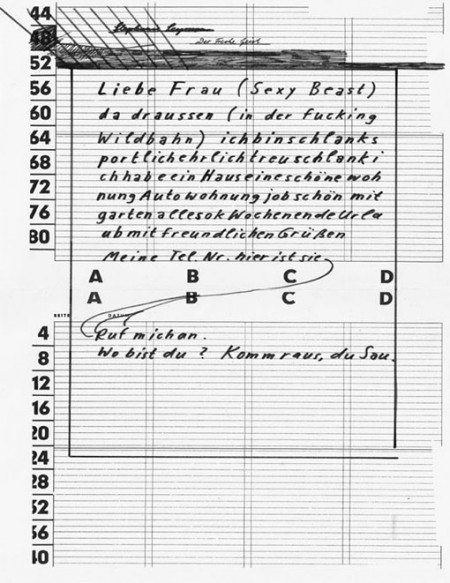 44
48
52
56
60
64
68
72
76
80
Der Treue Geist
Liebe Frau (Sexy Beast)
da draussen (in der fucking
Wildbahn) ichbinschlanks
portlichehrlichtreuschlanki
chhabeeinHauseineschönewoh
nungAutowohnungjobschön mit
gartenallesokWochenendeUrla
ubmitfreundlichenGrüßen
Meine Tel. Nr. hier ist sie
A B C D
A B C D
SEITE DATUM
Ruf mich an.
Wo bist du? Komm raus, du Sau.
4
8
12
16
20
24
28
32
36
40